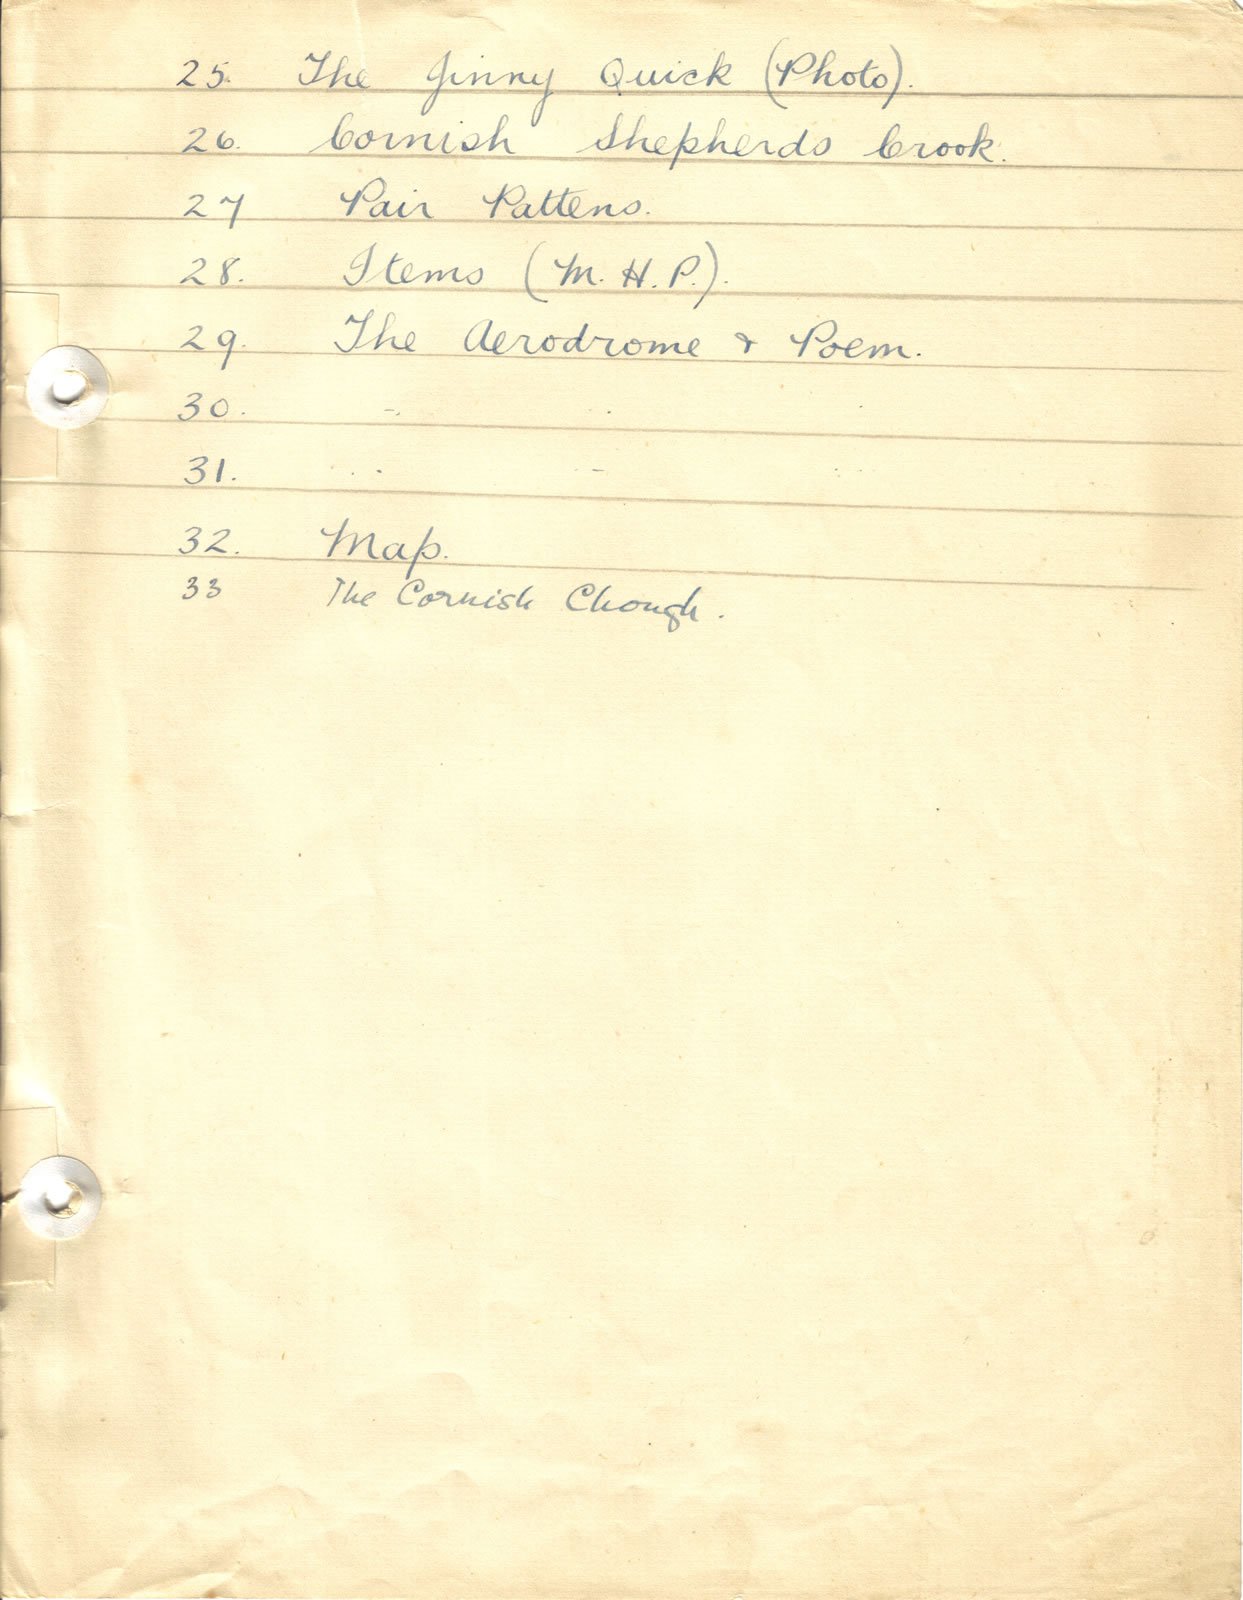 25. The Jinny Quick (Photo).
26. Cornish Shepherds Crook.
27 Pair Pattens.
28. Items (M. H. P.).
29. The Aerodrome & Poem.
30. " " "
31. " " "
32. Map.
33 The Cornish Chough.